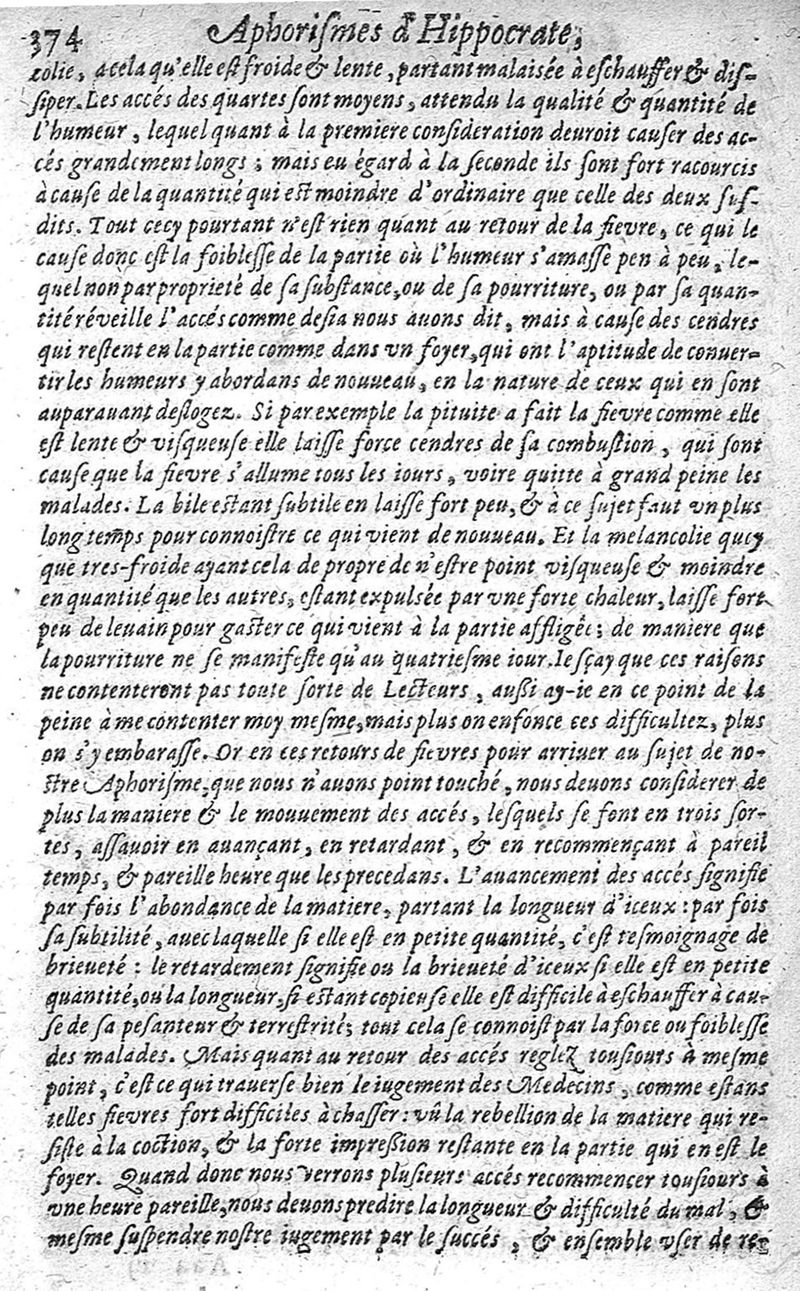 374 Aphoriſmes d'Hippocrate,
colie, a cela qu'elle eſt froide & lente, partant malaiſée à eſchauffer & diſ-
ſiper. Les accés des quartes ſont moyens, attendu la qualité & quantité de
l'humeur, lequel quant à la premiere conſideration deuroit cauſer des ac-
cés grandement longs; mais eu égard à la ſeconde ils ſont fort racourcis
à cauſe de la quantité qui eſt moindre d'ordinaire que celle des deux ſuſ-
dits. Tout cecy pourtant n'eſt rien quant au retour de la fievre, ce qui le
cauſe donc eſt la foibleſſe de la partie où l'humeur s'amaſſe pen à peu, le-
quel non par proprieté de ſa ſubſtance, ou de ſa pourriture, ou par ſa quan-
tité réveille l'accés comme deſia nous auons dit, mais à cauſe des cendres
qui reſtent en la partie comme dans vn foyer, qui ont l'aptitude de conuer-
tir les humeurs y abordans de nouueau, en la nature de ceux qui en ſont
auparauant deſlogez. Si par exemple la pituite a fait la fievre comme elle
eſt lente & viſqueuſe elle laiſſe force cendres de ſa combuſtion, qui ſont
cauſe que la fievre s'allume tous les iours, voire quitte à grand peine les
malades. La bile eſtant ſubtile en laiſſe fort peu, & à ce ſujet faut vn plus
long temps pour connoiſtre ce qui vient de nouueau. Et la melancolie quoy
que tres-froide ayant cela de propre de n'eſtre point viſqueuſe & moindre
en quantité que les autres, eſtant expulſée par vne forte chaleur, laiſſe fort
peu de leuain pour gaſter ce qui vient à la partie affligée; de maniere que
la pourriture ne ſe manifeſte qu'au quatrieſme iour. Ie ſçay que ces raiſons
ne contenteront pas toute ſorte de Lecteurs, auſſi ay-ie en ce point de la
peine à me contenter moy meſme, mais plus on enfonce ces difficultez, plus
on s'y embaraſſe. Or en ces retours de fievres pour arriuer au ſujet de no-
ſtre Aphoriſme, que nous n'auons point touché, nous deuons conſiderer de
plus la maniere & le mouuement des accés, leſquels ſe font en trois ſor-
tes, aſſauoir en auançant, en retardant, & en recommençant à pareil
temps, & pareille heure que les precedans. L'auancement des accés ſignifie
par fois l'abondance de la matiere, partant la longueur d'iceux: par fois
ſa ſubtilité, auec laquelle ſi elle eſt en petite quantité, c'eſt teſmoignage de
brieueté: le retardement ſignifie ou la brieueté d'iceux ſi elle eſt en petite
quantité, ou la longueur, ſi eſtant copieuſe elle eſt difficile à eſchauffer à cau-
ſe de ſa peſanteur & terreſtrité; tout cela ſe connoiſt par la force ou foibleſſe
des malades. Mais quant au retour des accés reglez touſiours à meſme
point, c'eſt ce qui trauerſe bien le iugement des Medecins, comme eſtans
telles fievres fort difficiles à chaſſer: vû la rebellion de la matiere qui re-
ſiſte à la coction, & la forte impreſſion reſtante en la partie qui en eſt le
foyer. Quand donc nous verrons pluſieurs accés recommencer touſiours à
vne heure pareille, nous deuons predire la longueur & difficulté du mal, &
meſme ſuſpendre noſtre iugement par le ſuccés, & enſemble vſer de re-